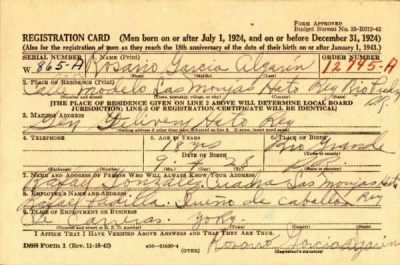 FORM APPROVED
Budget Bureau No. 33-R012-42
REGISTRATION CARD (Men born on or after July 1, 1924, and on or before December 31, 1924)
(Also for the registration of men as they reach the 18th anniversary of the date of their birth on or after January 1, 1943.)
SERIAL NUMBER 1. NAME (Print) ORDER NUMBER
W 865-A Rosario Garcia Algarin 12745-A
2. PLACE OF RESIDENCE (Print)
Calle Modelo Las Monjas Hato Rey Rio Piedras
P.R.
[THE PLACE OF RESIDENCE GIVEN ON LINE 2 ABOVE WILL DETERMINE LOCAL BOARD
JURISDICTION; LINE 2 OF REGISTRATION CERTIFICATE WILL BE IDENTICAL]
3. MAILING ADDRESS
Gen. Delivery Hato Rey
4. TELEPHONE 5. AGE IN YEARS 6. PLACE OF BIRTH
18 yrs Rio Grande
DATE OF BIRTH
9 24 P.R.
7. NAME AND ADDRESS OF PERSON WHO WILL ALWAYS KNOW YOUR ADDRESS
Rafael Gonzalez Las Monjas Hato
Rey
8. EMPLOYER'S NAME AND ADDRESS
Rafael Padilla Dueño de Caballos
9. PLACE OF EMPLOYMENT OR BUSINESS
De Carreras
I AFFIRM THAT I HAVE VERIFIED ABOVE ANSWERS AND THAT THEY ARE TRUE.
DSS Form 1 (Rev. 11-16-42) (OVER) Rosario Garcia Algarin